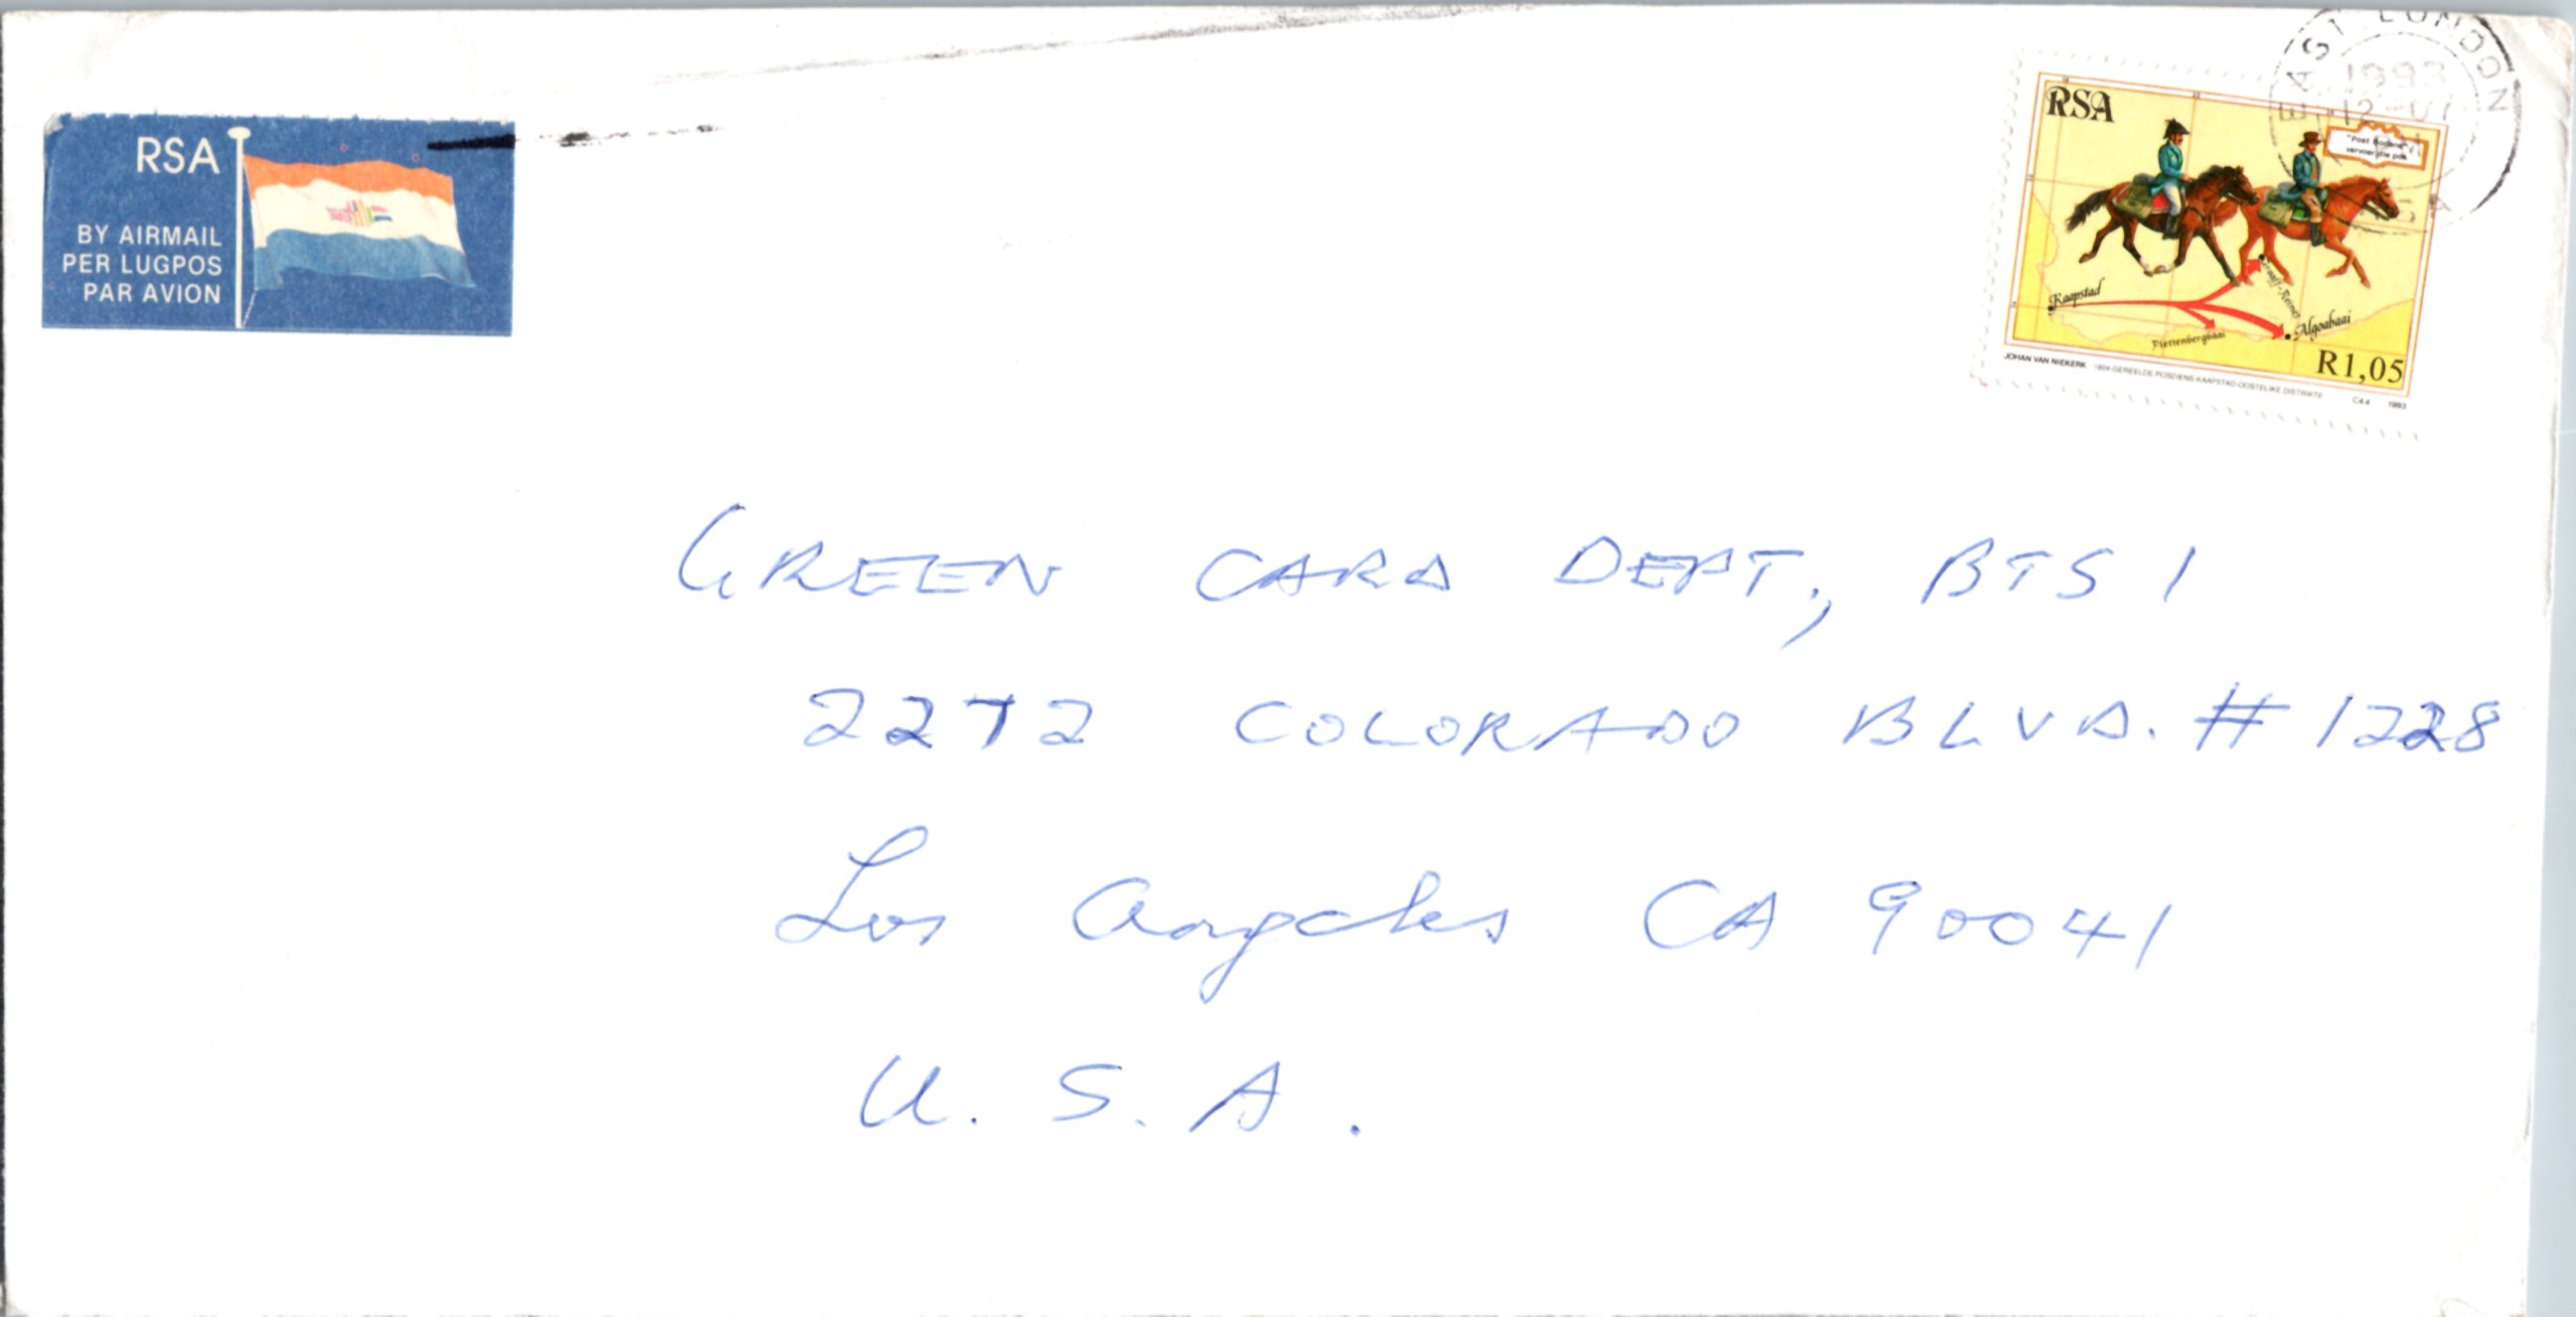 RSA
BY AIRMAIL
PER LUGPOS
PAR AVION
EAST LONDON
1993
12-07
RSA
"Post Rodens"
Kaapstad
Graaff-Reinet
Plettenbergbaai
Algoabaai
R1,05
JOHAN VAN NIEKERK 1804 GEREELDE POSDIENS KAAPSTAD-OOSTELIKE DISTRIKTE C44 1993
GREEN CARD DEPT., BTS 1
2272 COLORADO BLVD. # 1228
Los Angeles CA 90041
U. S. A.